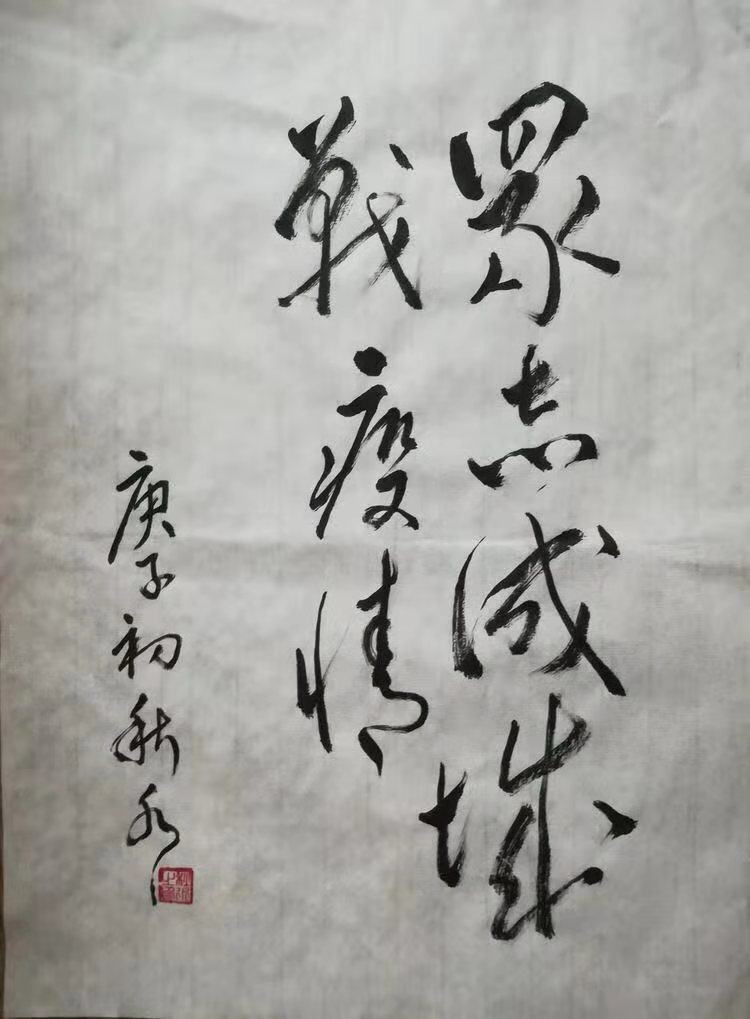 眾志成城
戰疫情
庚子初秋